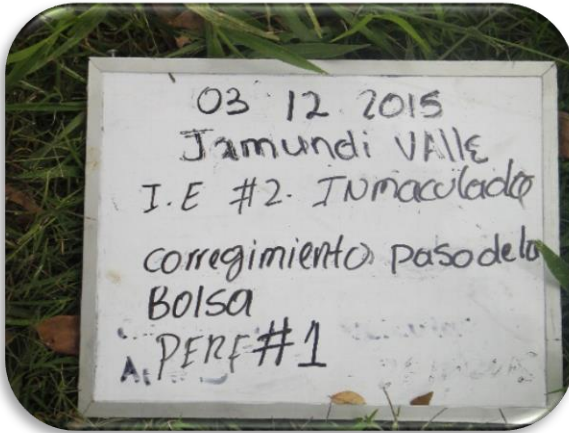 03 12 2015
Jamundi VAllE
I.E #2. INmaculada
corregimiento paso de la
Bolsa
PERF #1